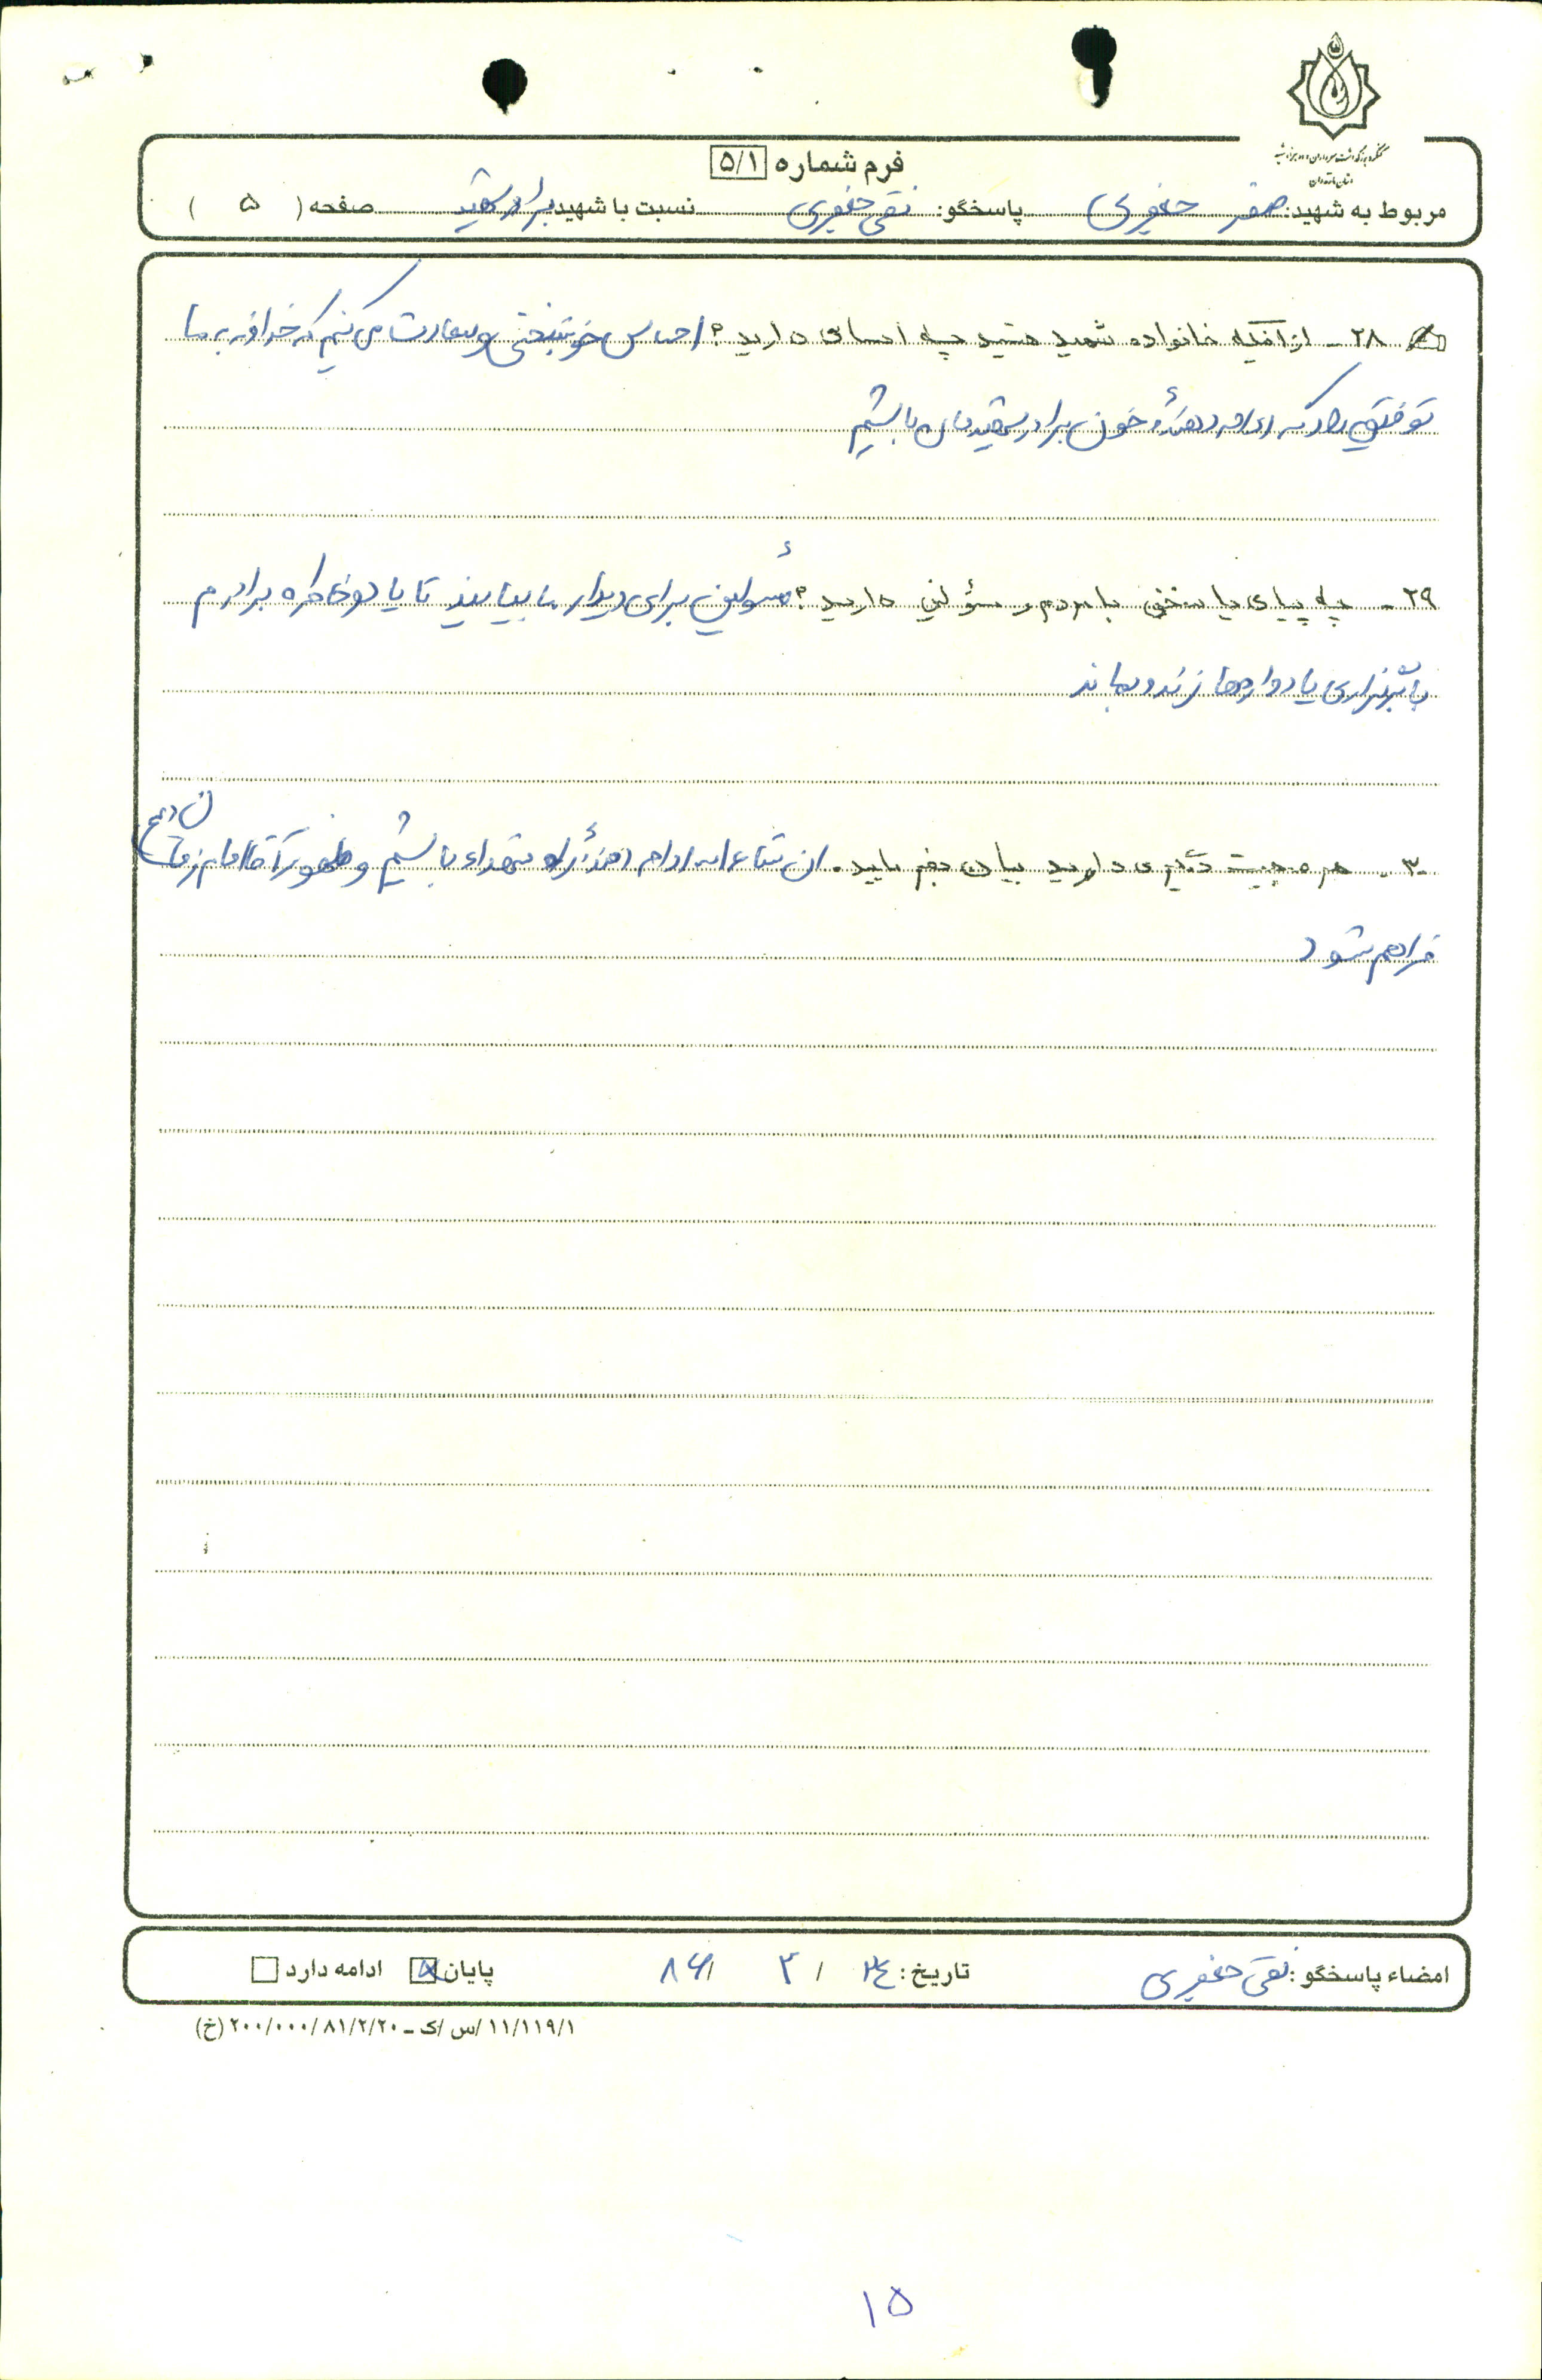 کنگره بزرگداشت سرداران و ده هزار شهید
استان مازندران
فرم شماره ۵/۱
مربوط به شهید: صفر جعفری پاسخگو: نقی جعفری نسبت با شهید برادر شهید صفحه ( ۵ )
۲۸ - از اینکه خانواده شهید هستید چه احساسی دارید؟ احساس خوشبختی و سعادت می کنیم که خداوند به ما
توفیق داد که ادامه دهندۀ خون برادر شهیدمان باشیم
۲۹ - چه پیامی یا سخنی با مردم و مسؤلین دارید؟ مسئولین برای دیدار ما بیایند تا یاد و خاطره برادرم
با برگزاری یادواره‌ها زنده بماند
۳۰ - هر صحبت دیگری دارید بیان بفرمایید. ان شاءا... ادامه دهندۀ راه شهداء باشیم و ظهور آقا امام زمان (عج)
فراهم شود
امضاء پاسخگو: نقی جعفری تاریخ: ۲۴ / ۳ / ۸۶ پایان ادامه دارد
۱۱/۱۱۹/۱/س/ک - ۲۰۰/۰۰۰/۸۱/۲/۲۰ (خ)
۱۵